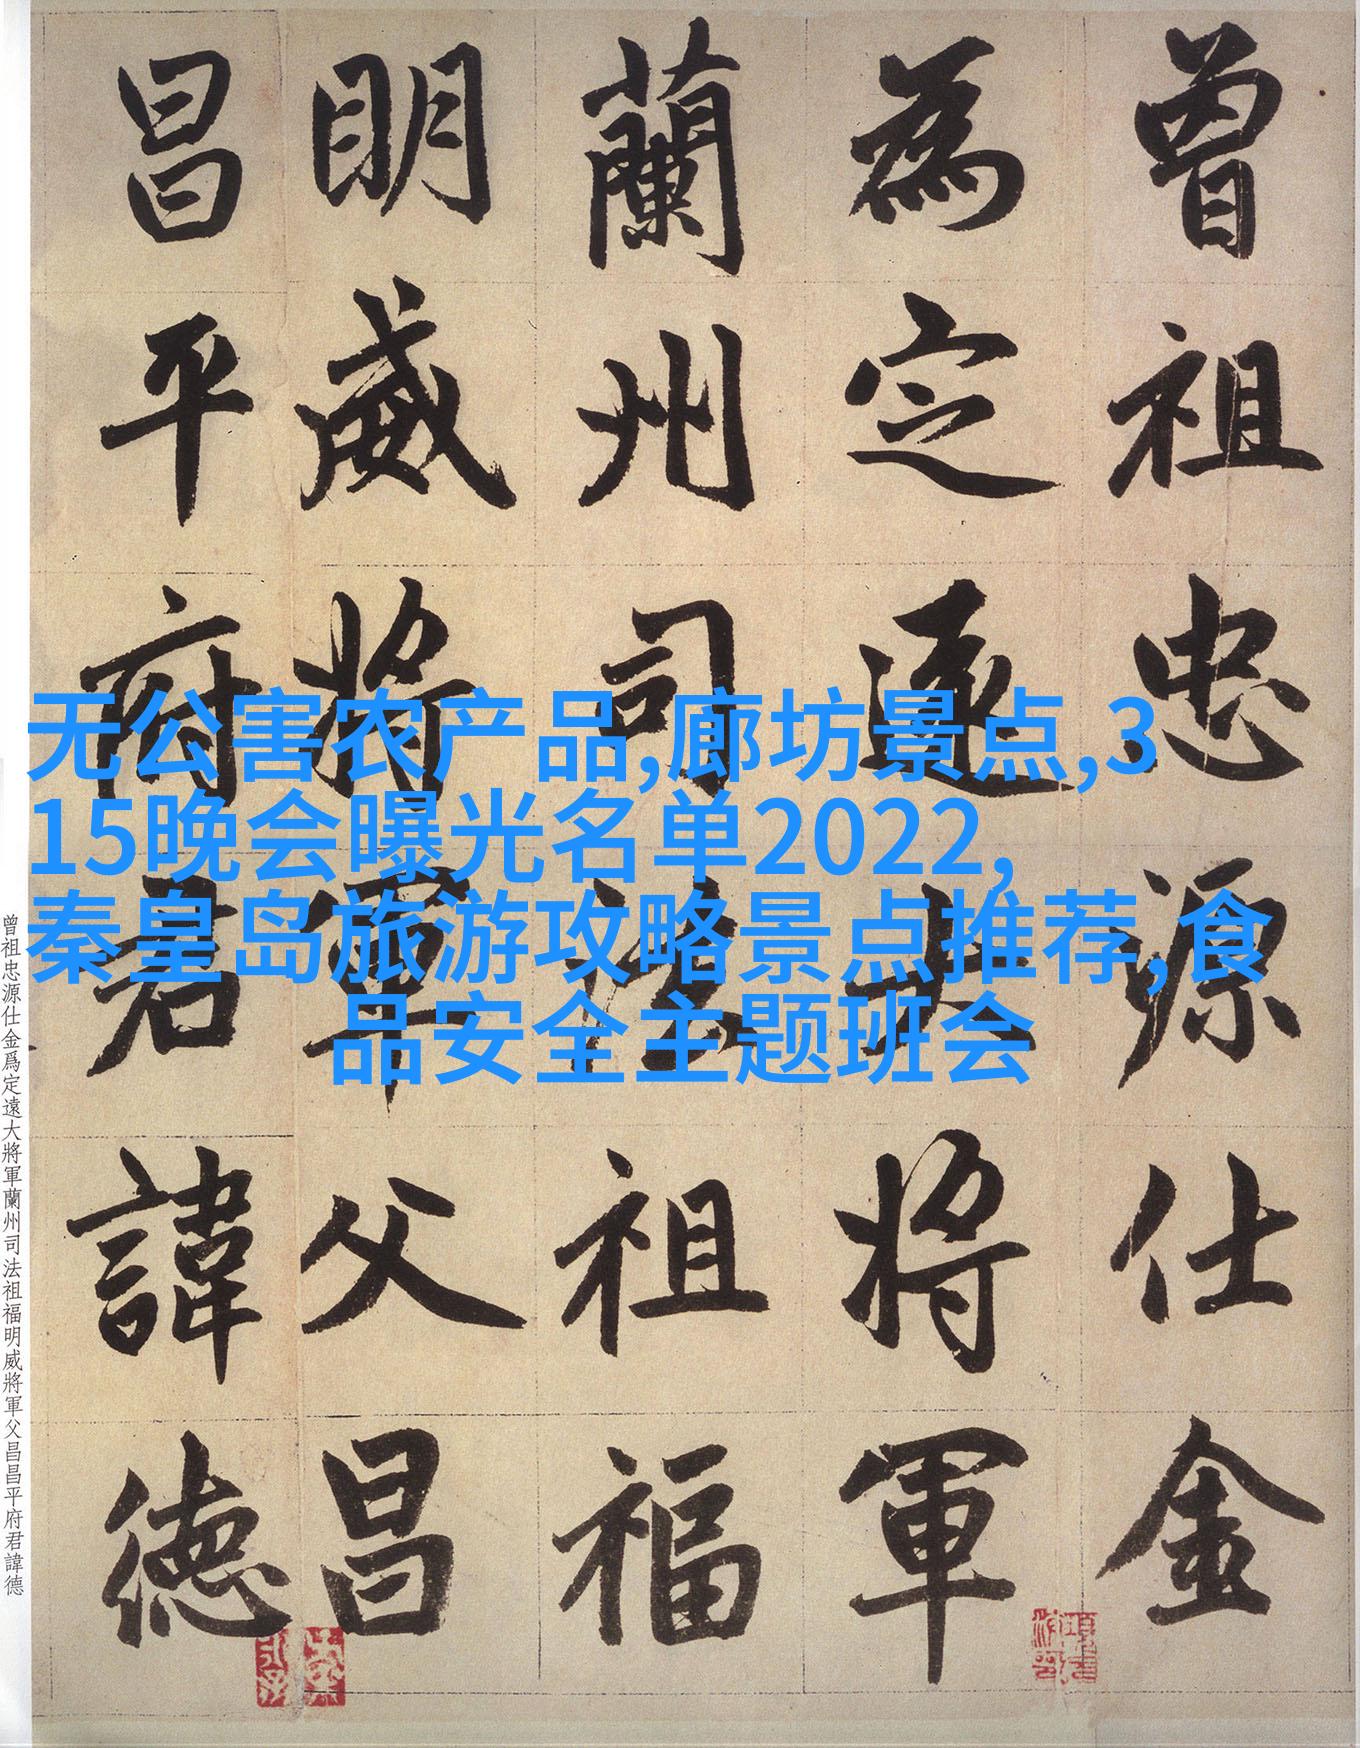 曾祖忠源仕金
為定遠大將軍
蘭州司法祖福
明威將軍父昌
昌平府君諱德
无公害农产品,廊坊景点,3
15晚会曝光名单2022,
秦皇岛旅游攻略景点推荐,食
品安全主题班会
曾祖忠源仕金爲定遠大將軍蘭州司法祖福明威將軍父昌昌平府君諱德